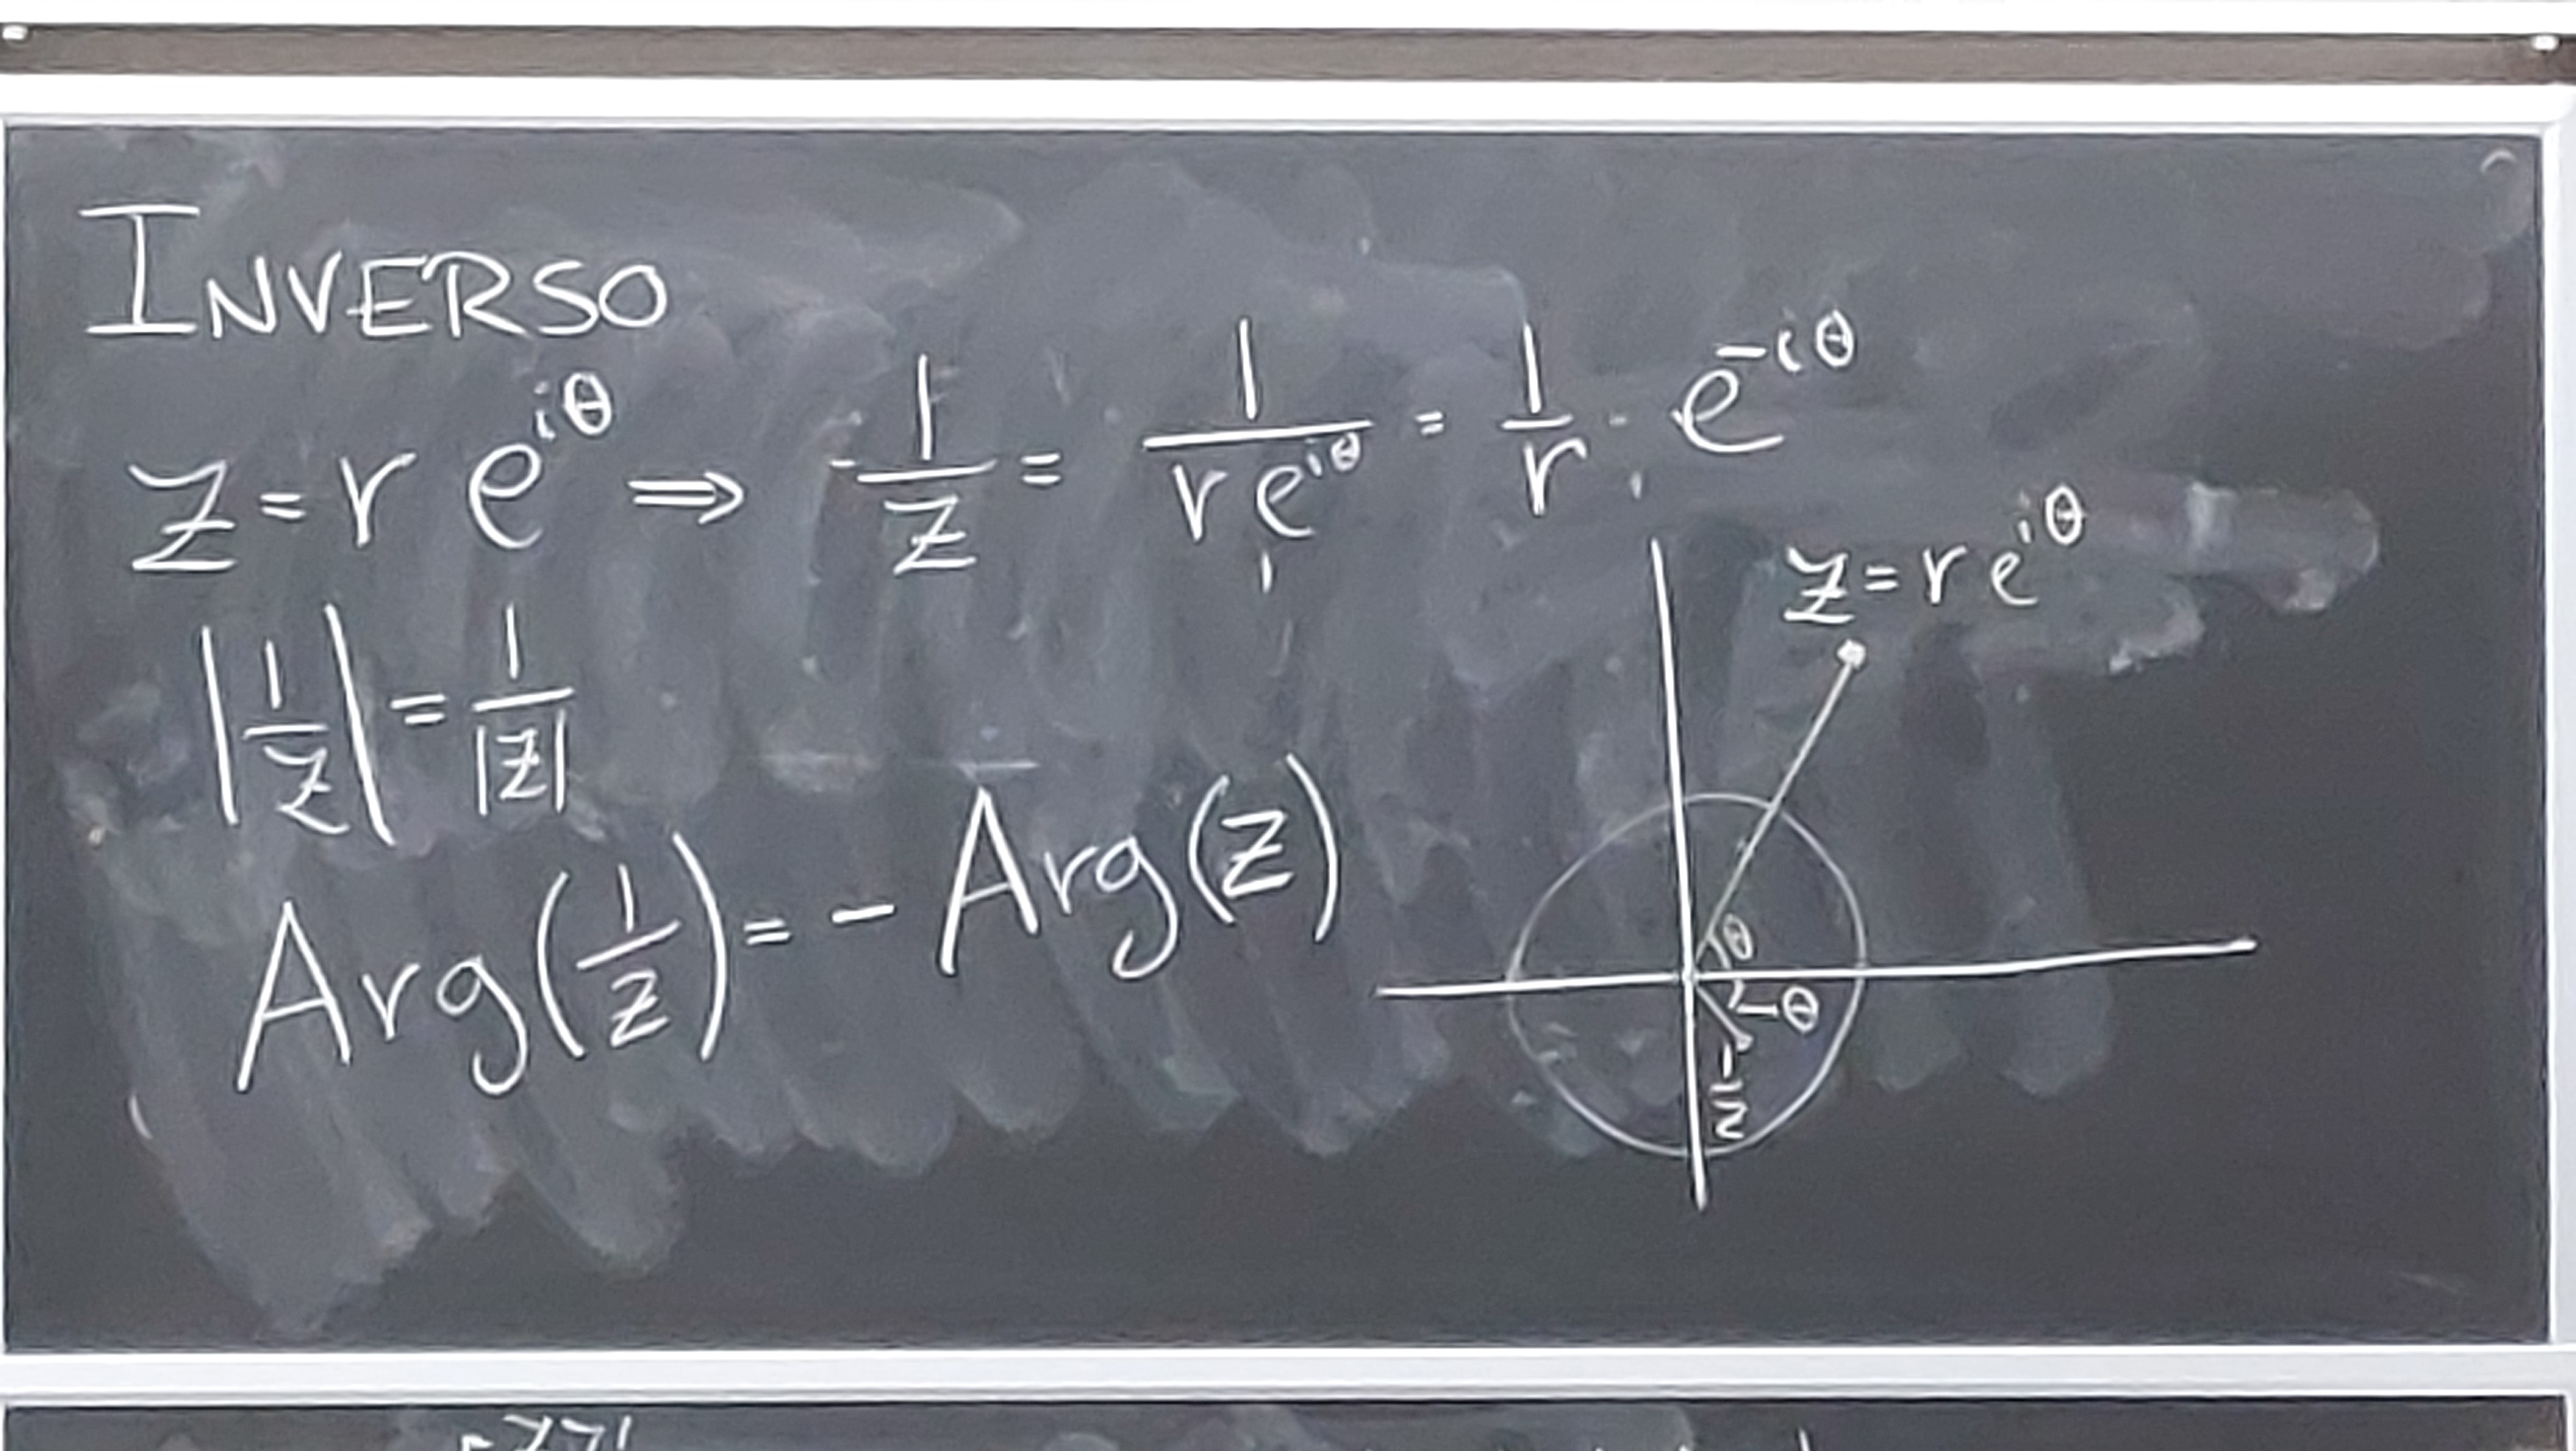 INVERSO
z = r e^{iθ} ⇒ \frac{1}{z} = \frac{1}{r e^{iθ}} = \frac{1}{r} · e^{-iθ}
|\frac{1}{z}| = \frac{1}{|z|}
Arg(\frac{1}{z}) = - Arg(z)
z = r e^{iθ}
θ
-θ
\frac{1}{z}